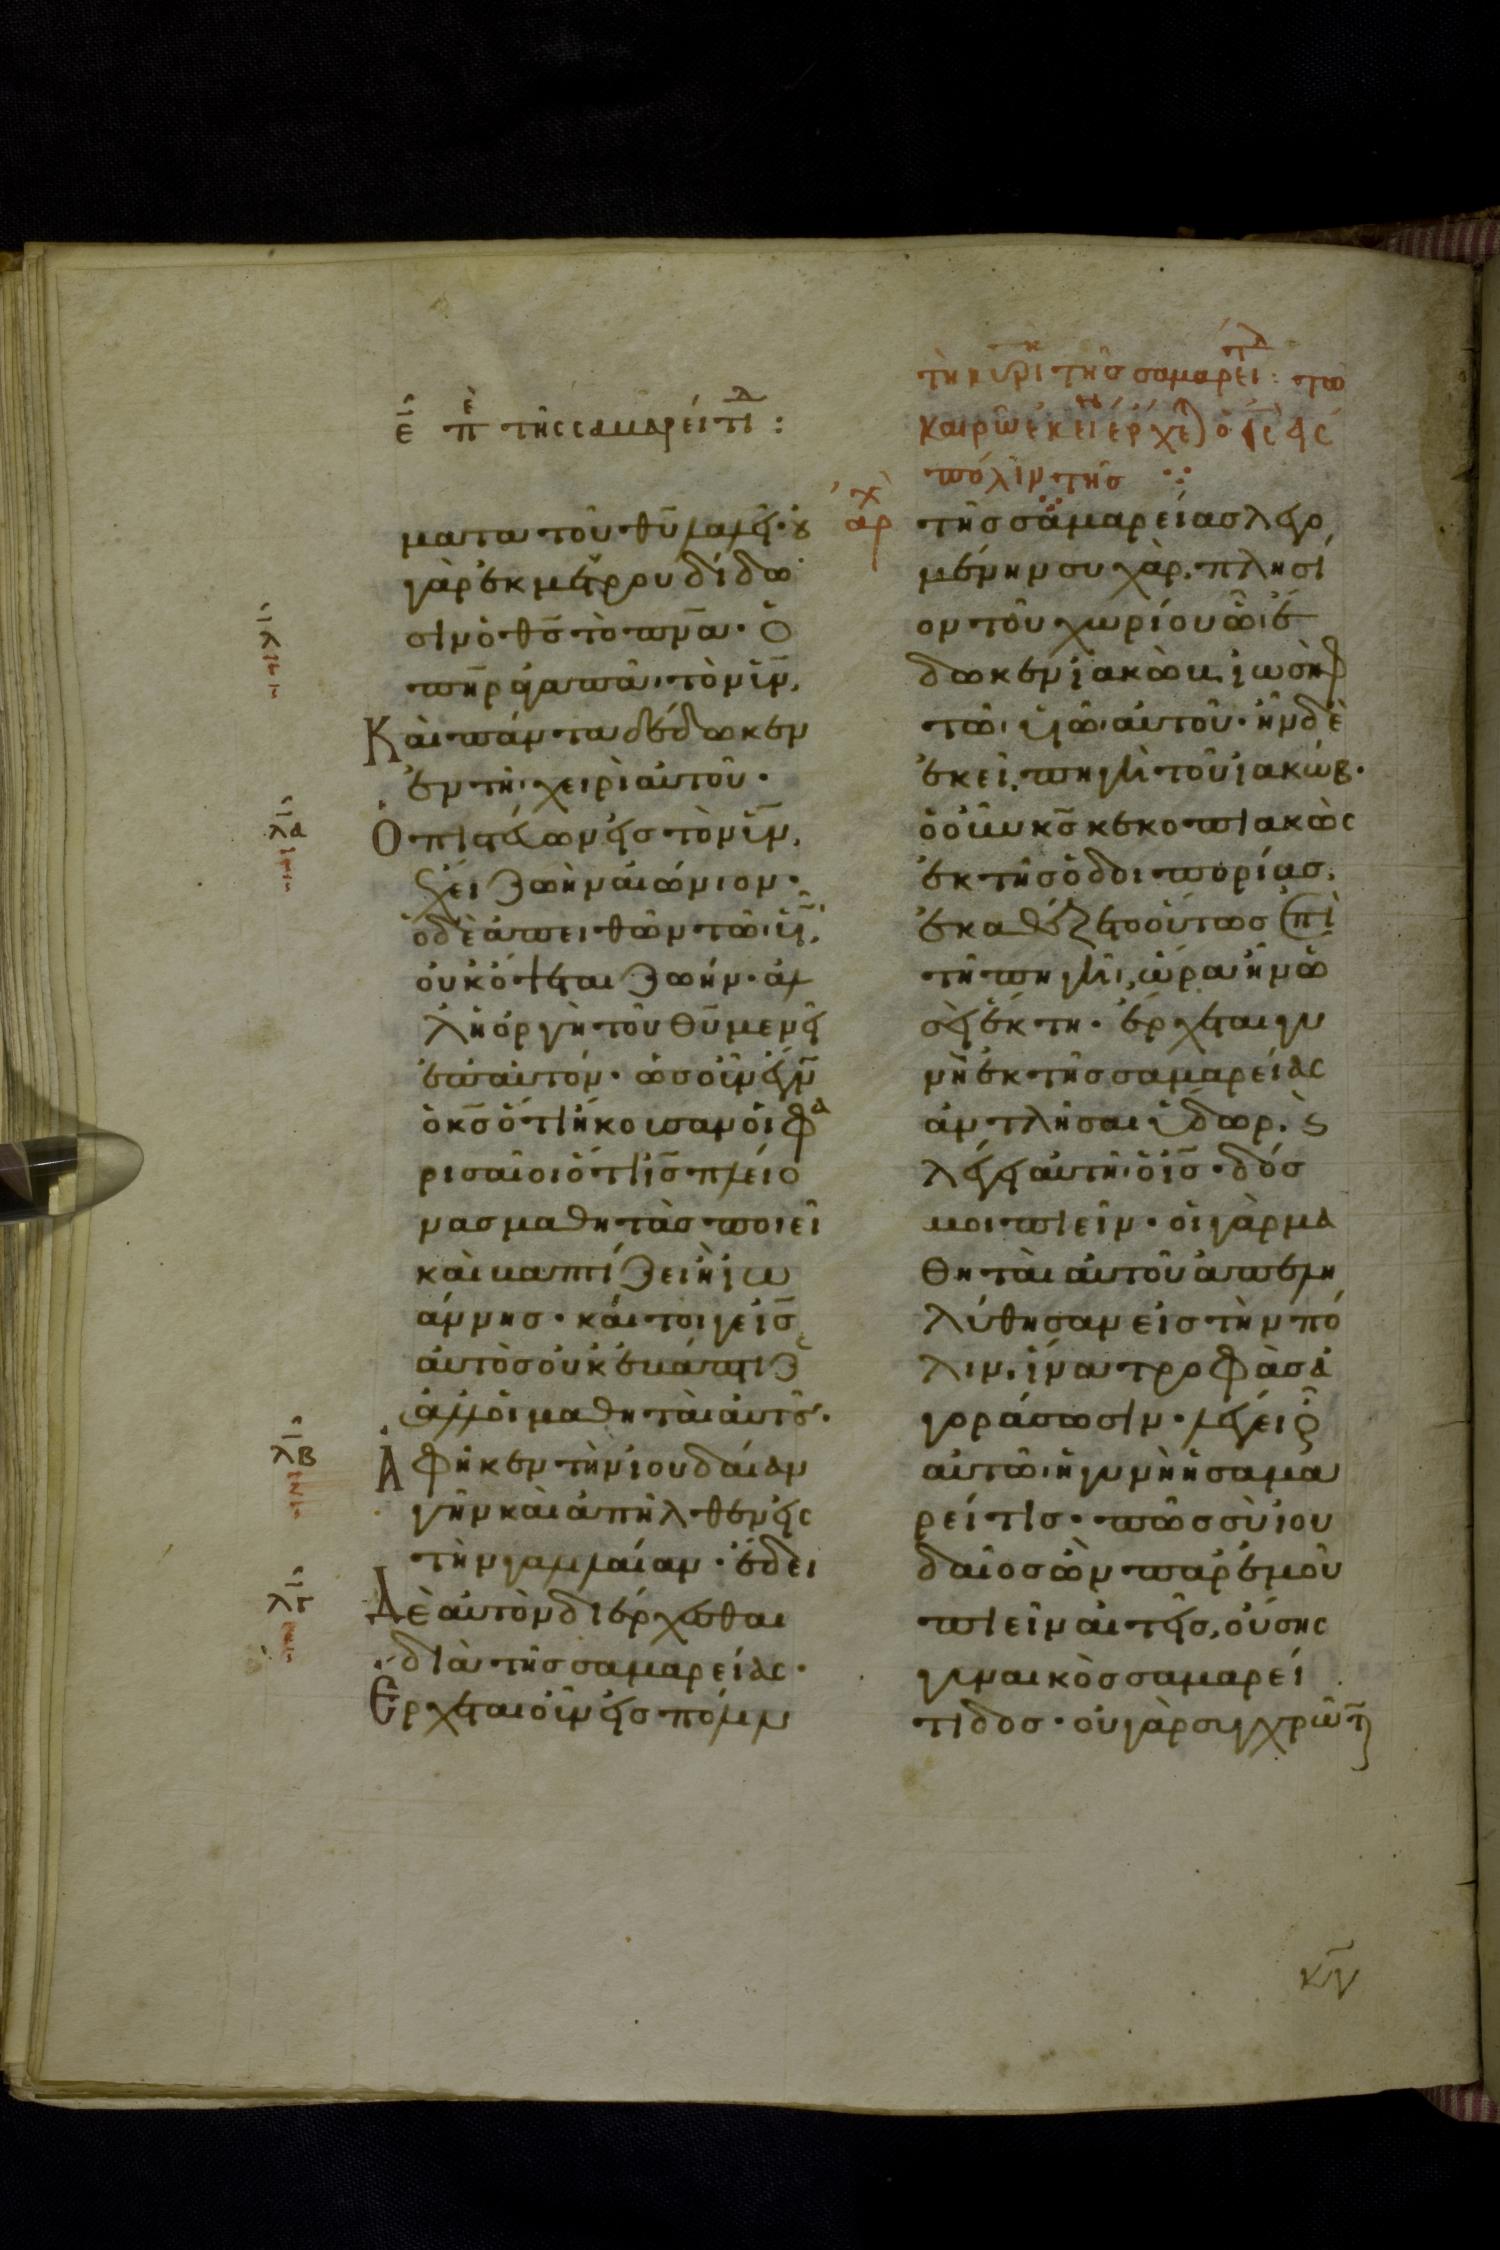 ε̄ πὲ τῆς σαμαρείτιδ :
ματα τοῦ θ̅υ̅ λαλεῖ· ȣ
γὰρ ἐκ μέτρου δίδω
σιν ὁ θ̅ς̅ τὸ πν̅α̅· Ὁ
π̅η̅ρ̅ ἀγαπᾶ· τὸν υ̅ν̅,
Καὶ πάντα δέδωκεν
ἐν τῆ χειρὶ αὐτοῦ·
Ὁ πιστεύων εἰς τὸν υ̅ν̅,
ἔχει ζωὴν αἰώνιον·
ὁ δὲ ἀπειθῶν τῶ υ̅ι̅,
οὐκ ὄψεται ζωήν· ἀλ
λ ἡ ὀργὴ τοῦ θ̅υ̅ μένει
ἐπ αὐτόν· ὡς οὖν ἔγν
ὁ κ̅ς̅ ὅτι ἤκουσαν οἱ φα
ρισαῖοι ὅτι ι̅ς̅ πλείο
νας μαθητὰς ποιεῖ
καὶ βαπτίζει ἢ ἰω
άννης· καίτοιγε ι̅ς̅
αὐτὸς οὐκ ἐβάπτιζε
ἀλλ οἱ μαθηταὶ αὐτȣ·
Ἀφῆκεν τὴν ἰουδαίαν
γῆν καὶ ἀπῆλθεν εἰς
τὴν γαλλαίαν· ἔδει
Δὲ αὐτὸν διέρχεσθαι
διὰ τῆς σαμαρείας·
Ἔρχεται οὖν εἰς πόλιν
λ̅α̅
λ̅β̅
λ̅γ̅
τῆ κυρι τῆς σαμαρειτδ : τῶ
καιρῶ ἐκεί ἔρχε ὁ ι̅ς̅ εἰς
πόλιν τῆς
ἀρχ
τῆς σαμαρείας λεγο
μένην συχὰρ, πλησί
ον τοῦ χωρίου ὃ ἔ
δωκεν ἰακὼβ ἰωσὴφ
τῶ υἱῶ αὐτοῦ· ἦν δὲ
ἐκεῖ πηγὴ τοῦ ἰακώβ·
ὁ οὖν κ̅ς̅ κεκοπιακὼς
ἐκ τῆς ὁδοιπορίας,
ἐκαθέζετο οὕτως ἐπὶ
τῆ πηγῆ, ὥρα ἦν ὡ
σεὶ ἕκτη· ἔρχεται γυ
νὴ ἐκ τῆς σαμαρείας
ἀντλῆσαι ὕδωρ, ϗ
λέγει αὐτῆ ὁ ι̅ς̅· δός
μοι πιεῖν· οἱ γὰρ μα
θηταὶ αὐτοῦ ἀπελη
λύθησαν εἰς τὴν πό
λιν, ἵνα τροφὰς ἀ
γοράσωσιν· λέγει οὖν
αὐτῶ ἡ γυνὴ ἡ σαμα
ρείτις· πῶς σὺ ἰου
δαῖος ὢν παρ ἐμοῦ
πιεῖν αἰτεῖς, οὔσης
γυναικὸς σαμαρεί
τιδος· οὐ γὰρ συγχρῶτ
κγ